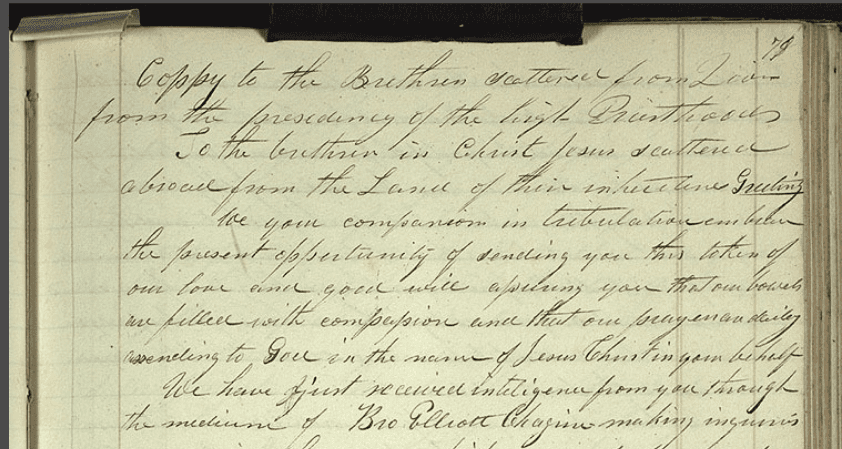 79
Coppy to the Brethren scattered from Zion
from the presidency of the high Priesthood
To the brethren in Christ Jesus scattered
abroad from the Land of their inheritence Greeting
We your companions in tribulation embrace
the present oppertunity of sending you this token of
our love and good will assuring you that our bowels
are filled with compassion and that our prayers are daily
assending to God in the name of Jesus Christ in your behalf
We have just received inteligence from you through
the medium of Bro Elliott making inquiries